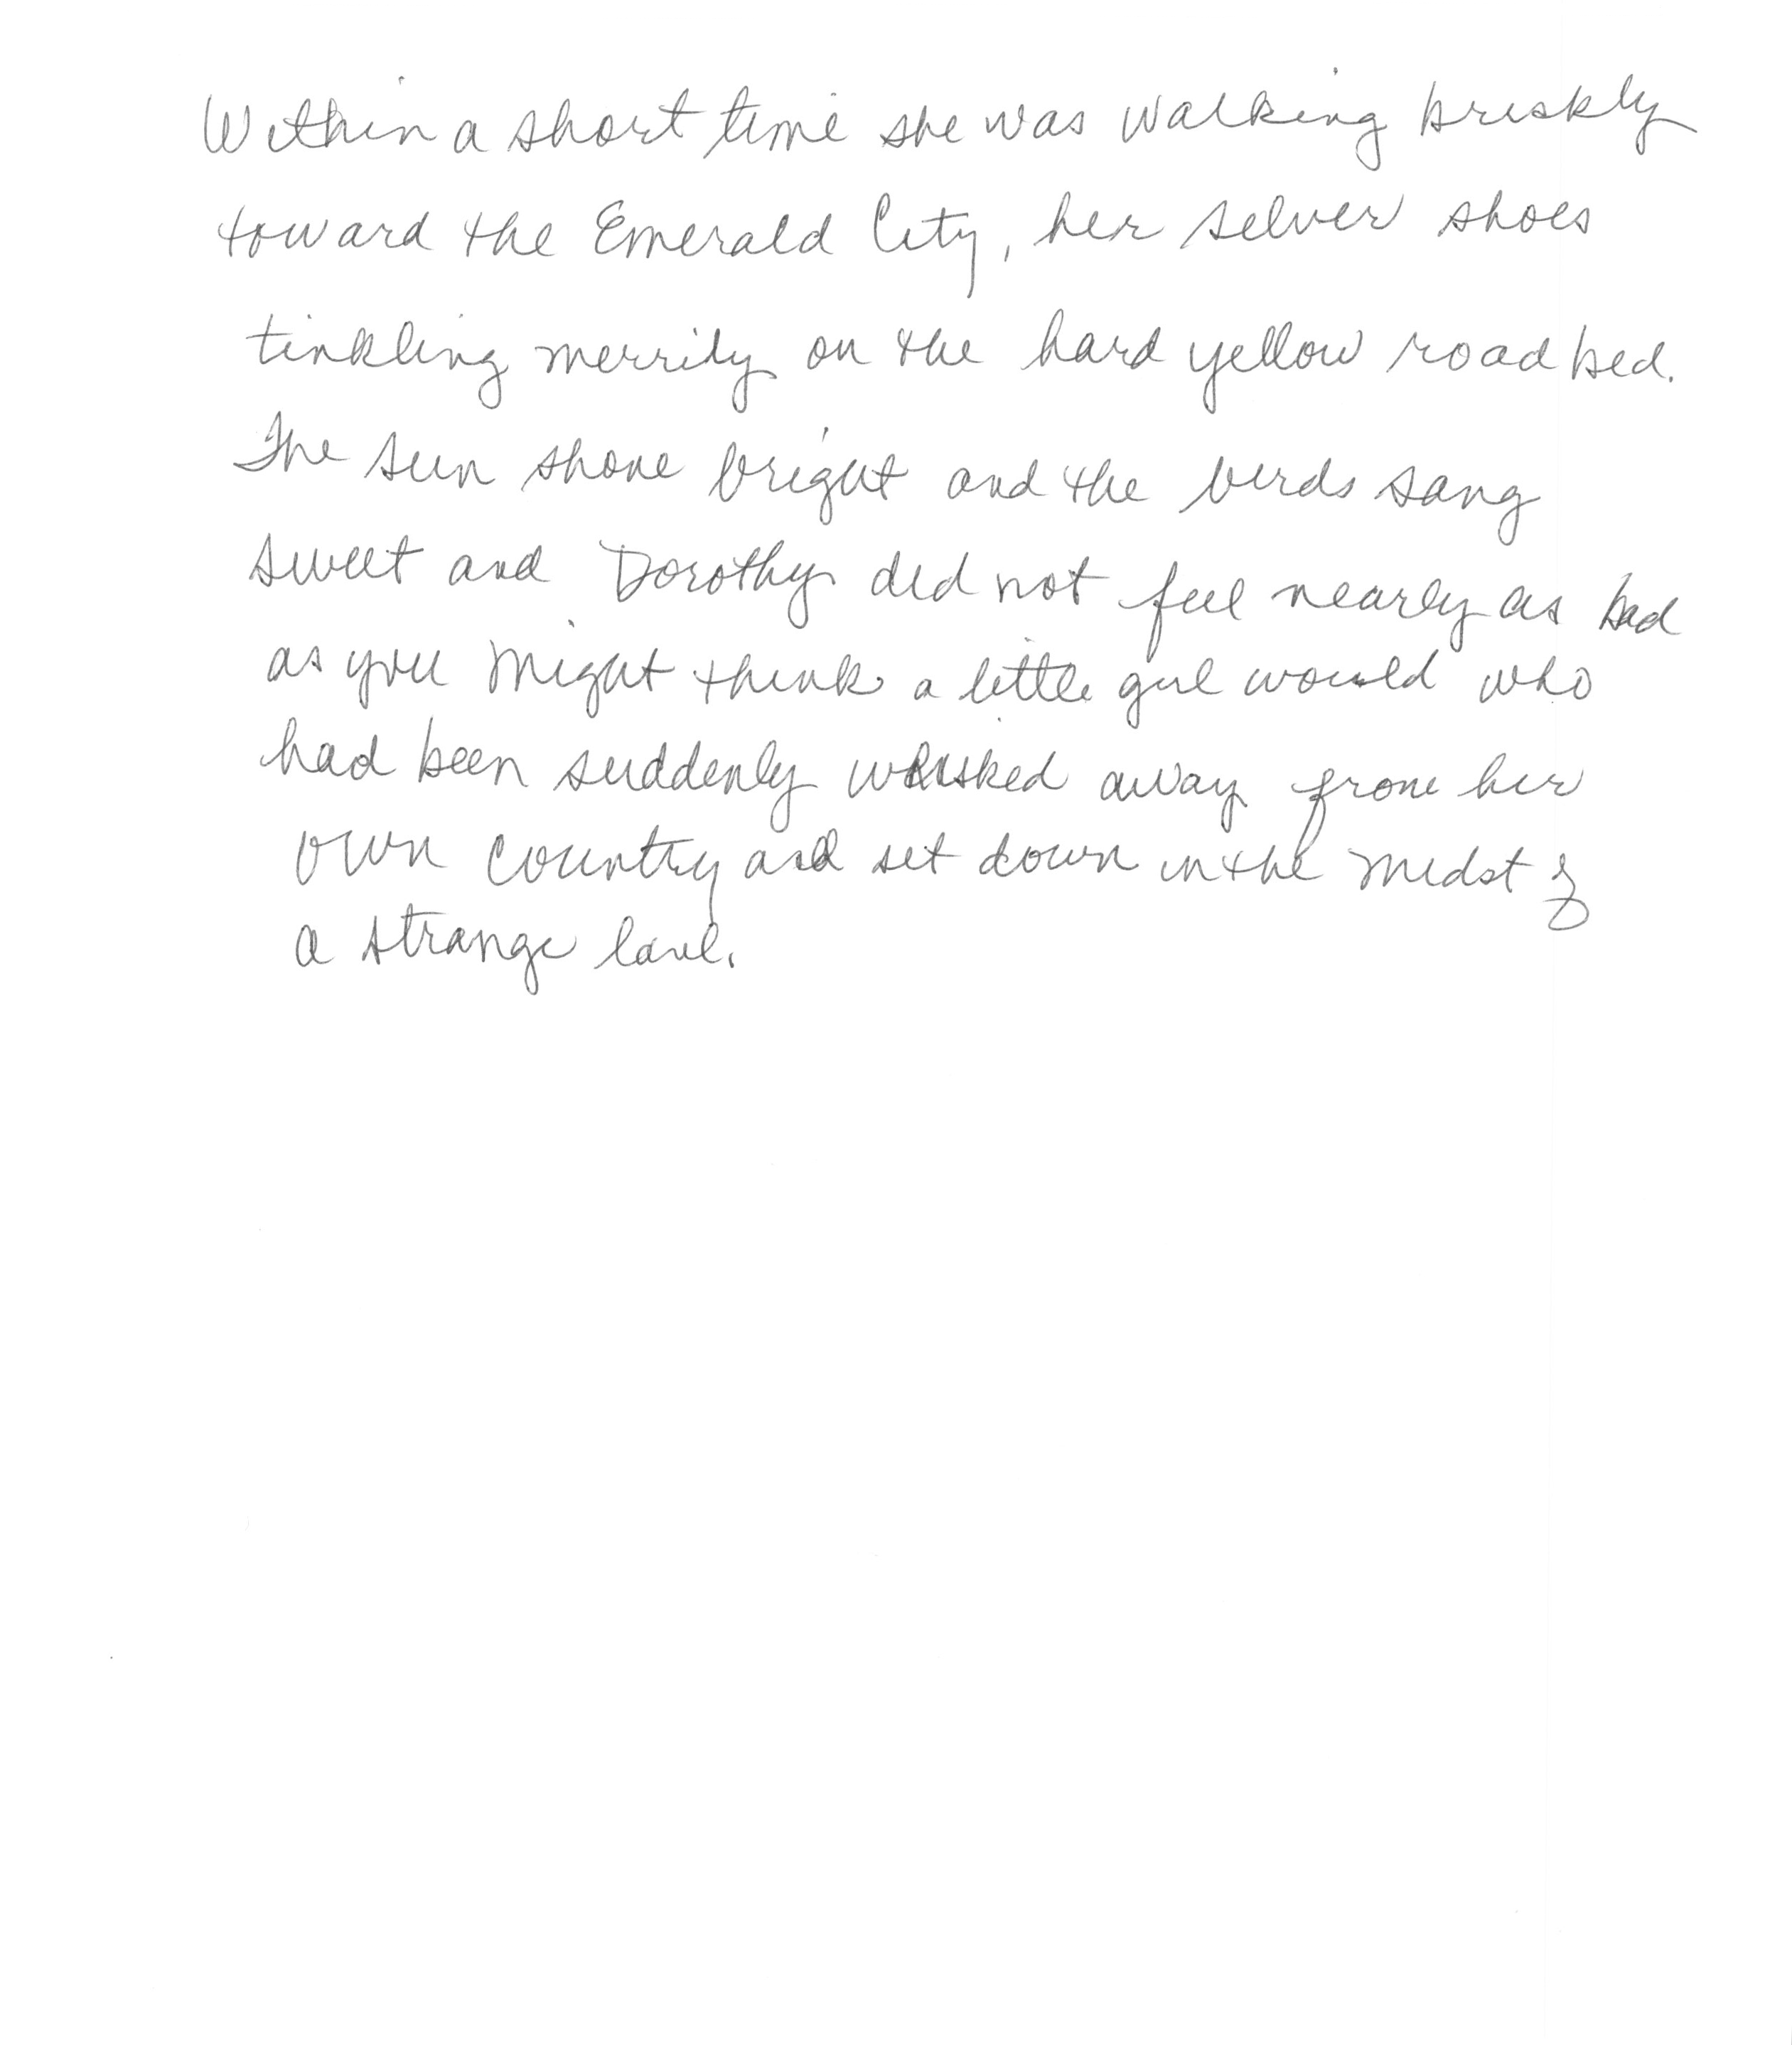 Within a short time she was walking briskly
toward the Emerald City, her silver shoes
tinkling merrily on the hard yellow road bed.
The sun shone bright and the birds sang
sweet and Dorothy did not feel nearly as bad
as you might think a little girl would who
had been suddenly whisked away from her
own country and set down in the midst of
a strange land.